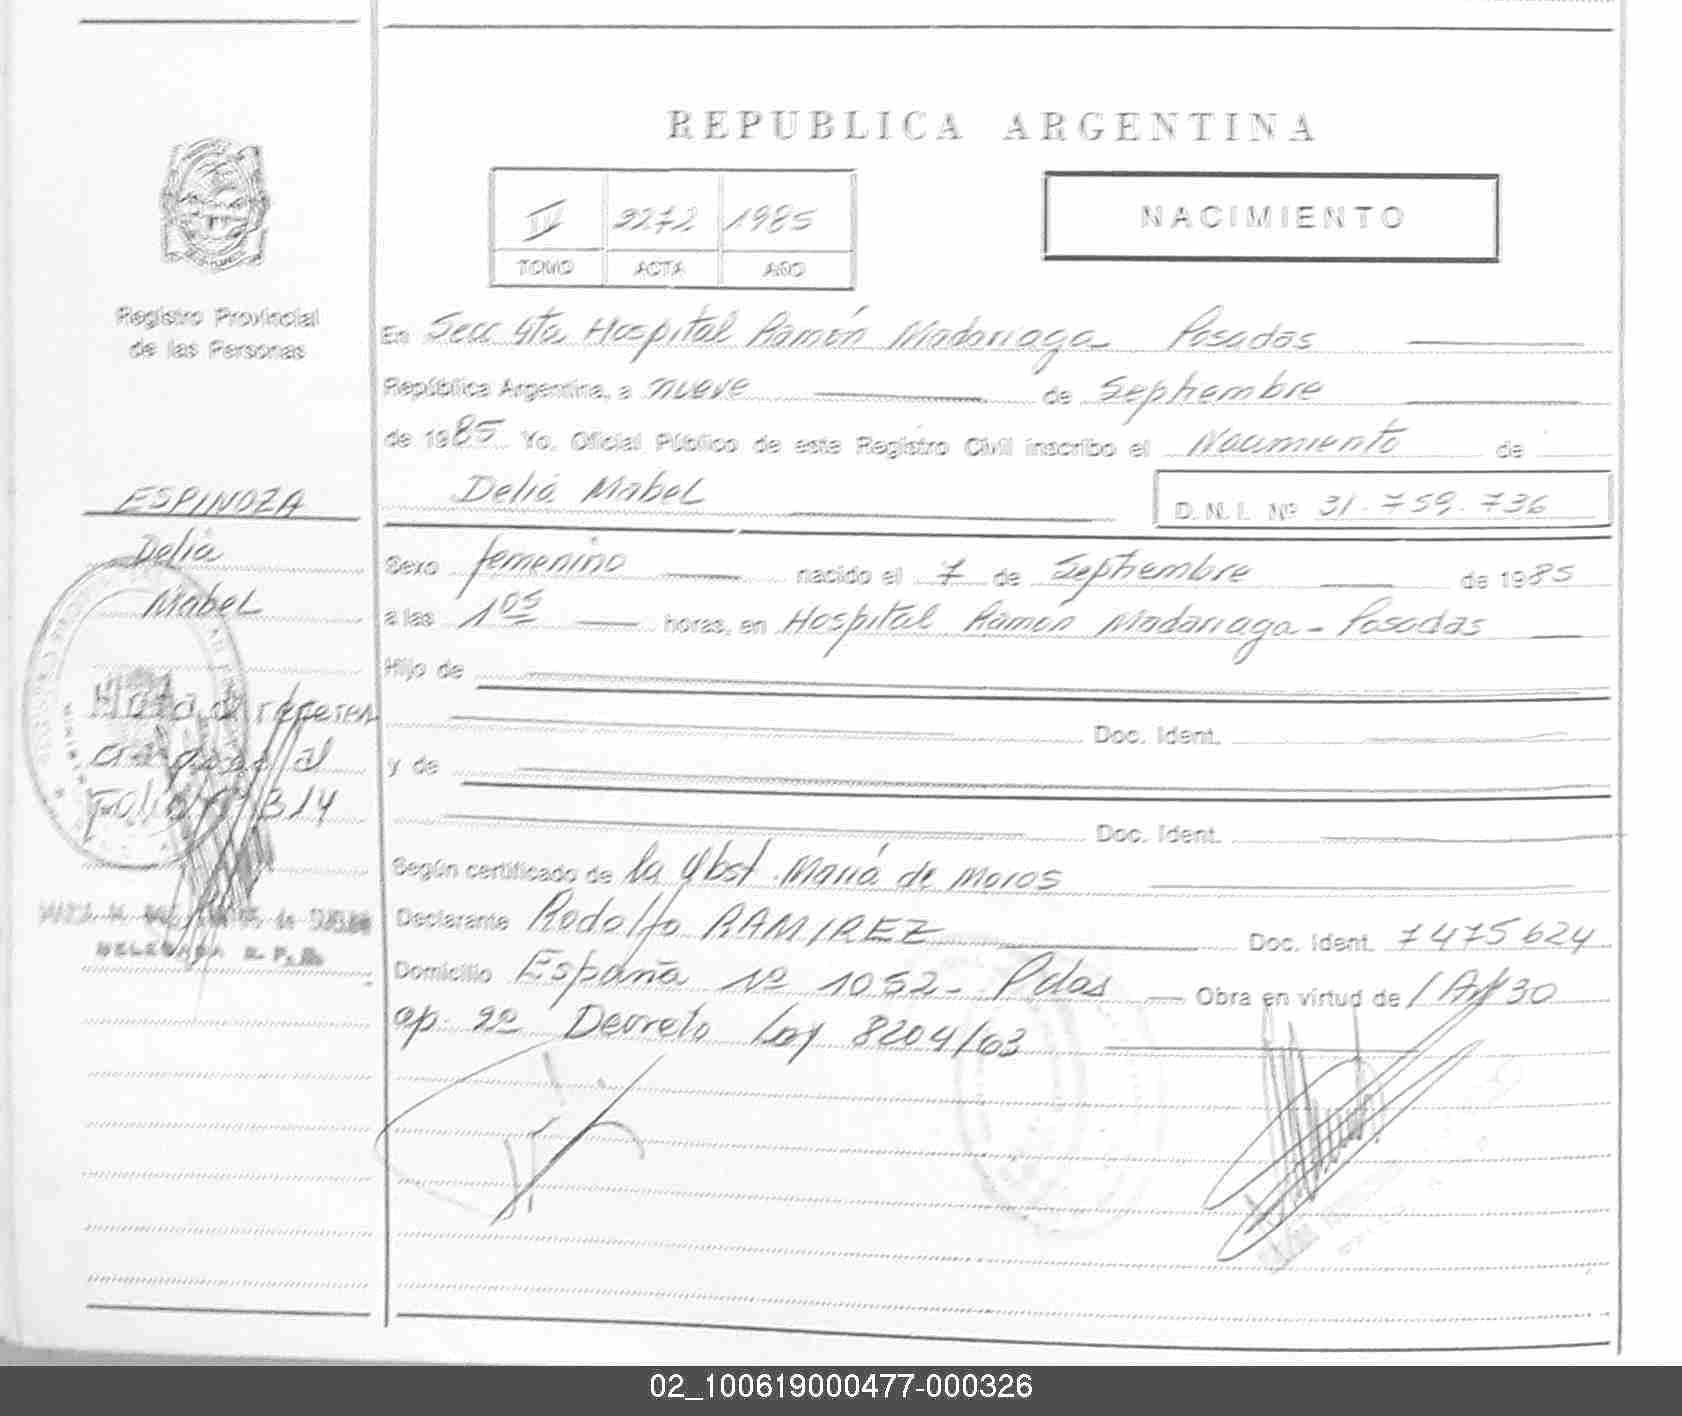 REPUBLICA ARGENTINA
IV 2272 1985
TOMO ACTA AÑO
NACIMIENTO
Registro Provincial
de las Personas
En Secc 4ta Hospital Ramón Madariaga Posadas
República Argentina, a nueve de Septiembre
de 1985 Yo, Oficial Público de este Registro Civil inscribo el Nacimiento de
Delia Mabel D.N.I. Nº 31.759.736
ESPINOZA
Delia
Mabel
Sexo femenino nacido el 7 de Septiembre de 1985
a las 1 05 horas, en Hospital Ramón Madariaga - Posadas
Hijo de
Doc. Ident.
y de
Doc. Ident.
Nota de
al
314
Según certificado de la Obst. María de Moros
Declarante Rodolfo RAMIREZ Doc. Ident. 7475624
Domicilio España Nº 1052 - Pdas Obra en virtud de / Art 30
ap. 2º Decreto Ley 8204/63
DELEGADA R. P. P.
02_100619000477-000326